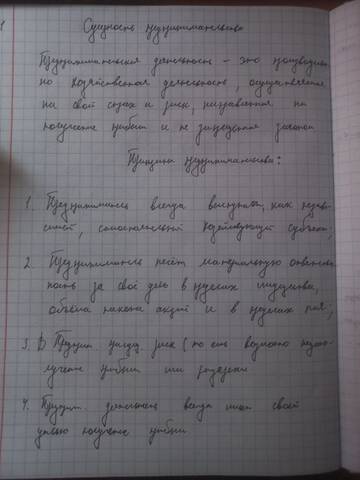 Сущность предпринимательства
Предпринимательская деятельность - это производствен
но хозяйственная деятельность, осуществляемая
на свой страх и риск, направленная на
получение прибыли и не запрещённая законом
Принципы предпринимательства:
1. Предприниматель всегда выступает, как незави
симый, самостоятельный хозяйствующий субъект;
2. Предприниматель несёт материальную ответствен
ность за своё дело в пределах имущества,
объёма пакета акций и в пределах пая;
3. В Предприн. риск (то есть возможно недопо
лучение прибыли или разорение
4. Предприн. деятельность всегда имеет своей
целью получение прибыли